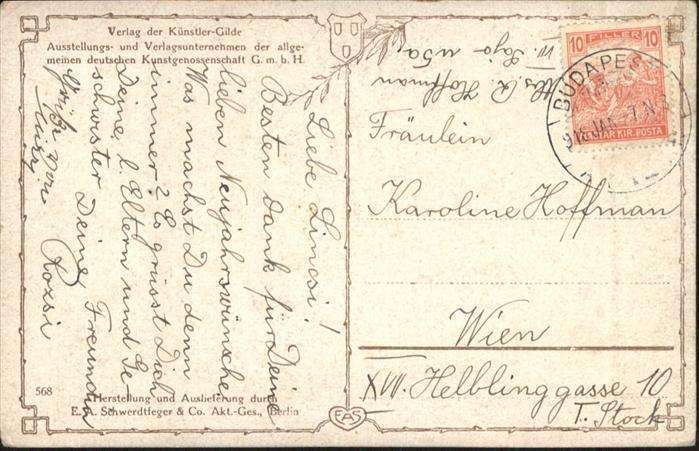 Verlag der Künstler-Gilde
Ausstellungs- und Verlagsunternehmen der allge-
meinen deutschen Kunstgenossenschaft G. m. b. H.
Liebe Lincsi!
Besten Dank für Deine
lieben Neujahrswünsche
Was machst Du denn
immer? Es grüsst Dich
Deine l. Eltern und Ge-
schwister Deine Freundin
Rozsi
568
Herstellung und Auslieferung durch
E. S. Schwerdtfeger & Co. Akt.-Ges., Berlin
EAS
Hoffman
10 FILLER 10
MAGYAR KIR. POSTA
BUDAPES
918 JAN
Fräulein
Karoline Hoffman
Wien
XVII. Helblinggasse 10
T. Stock